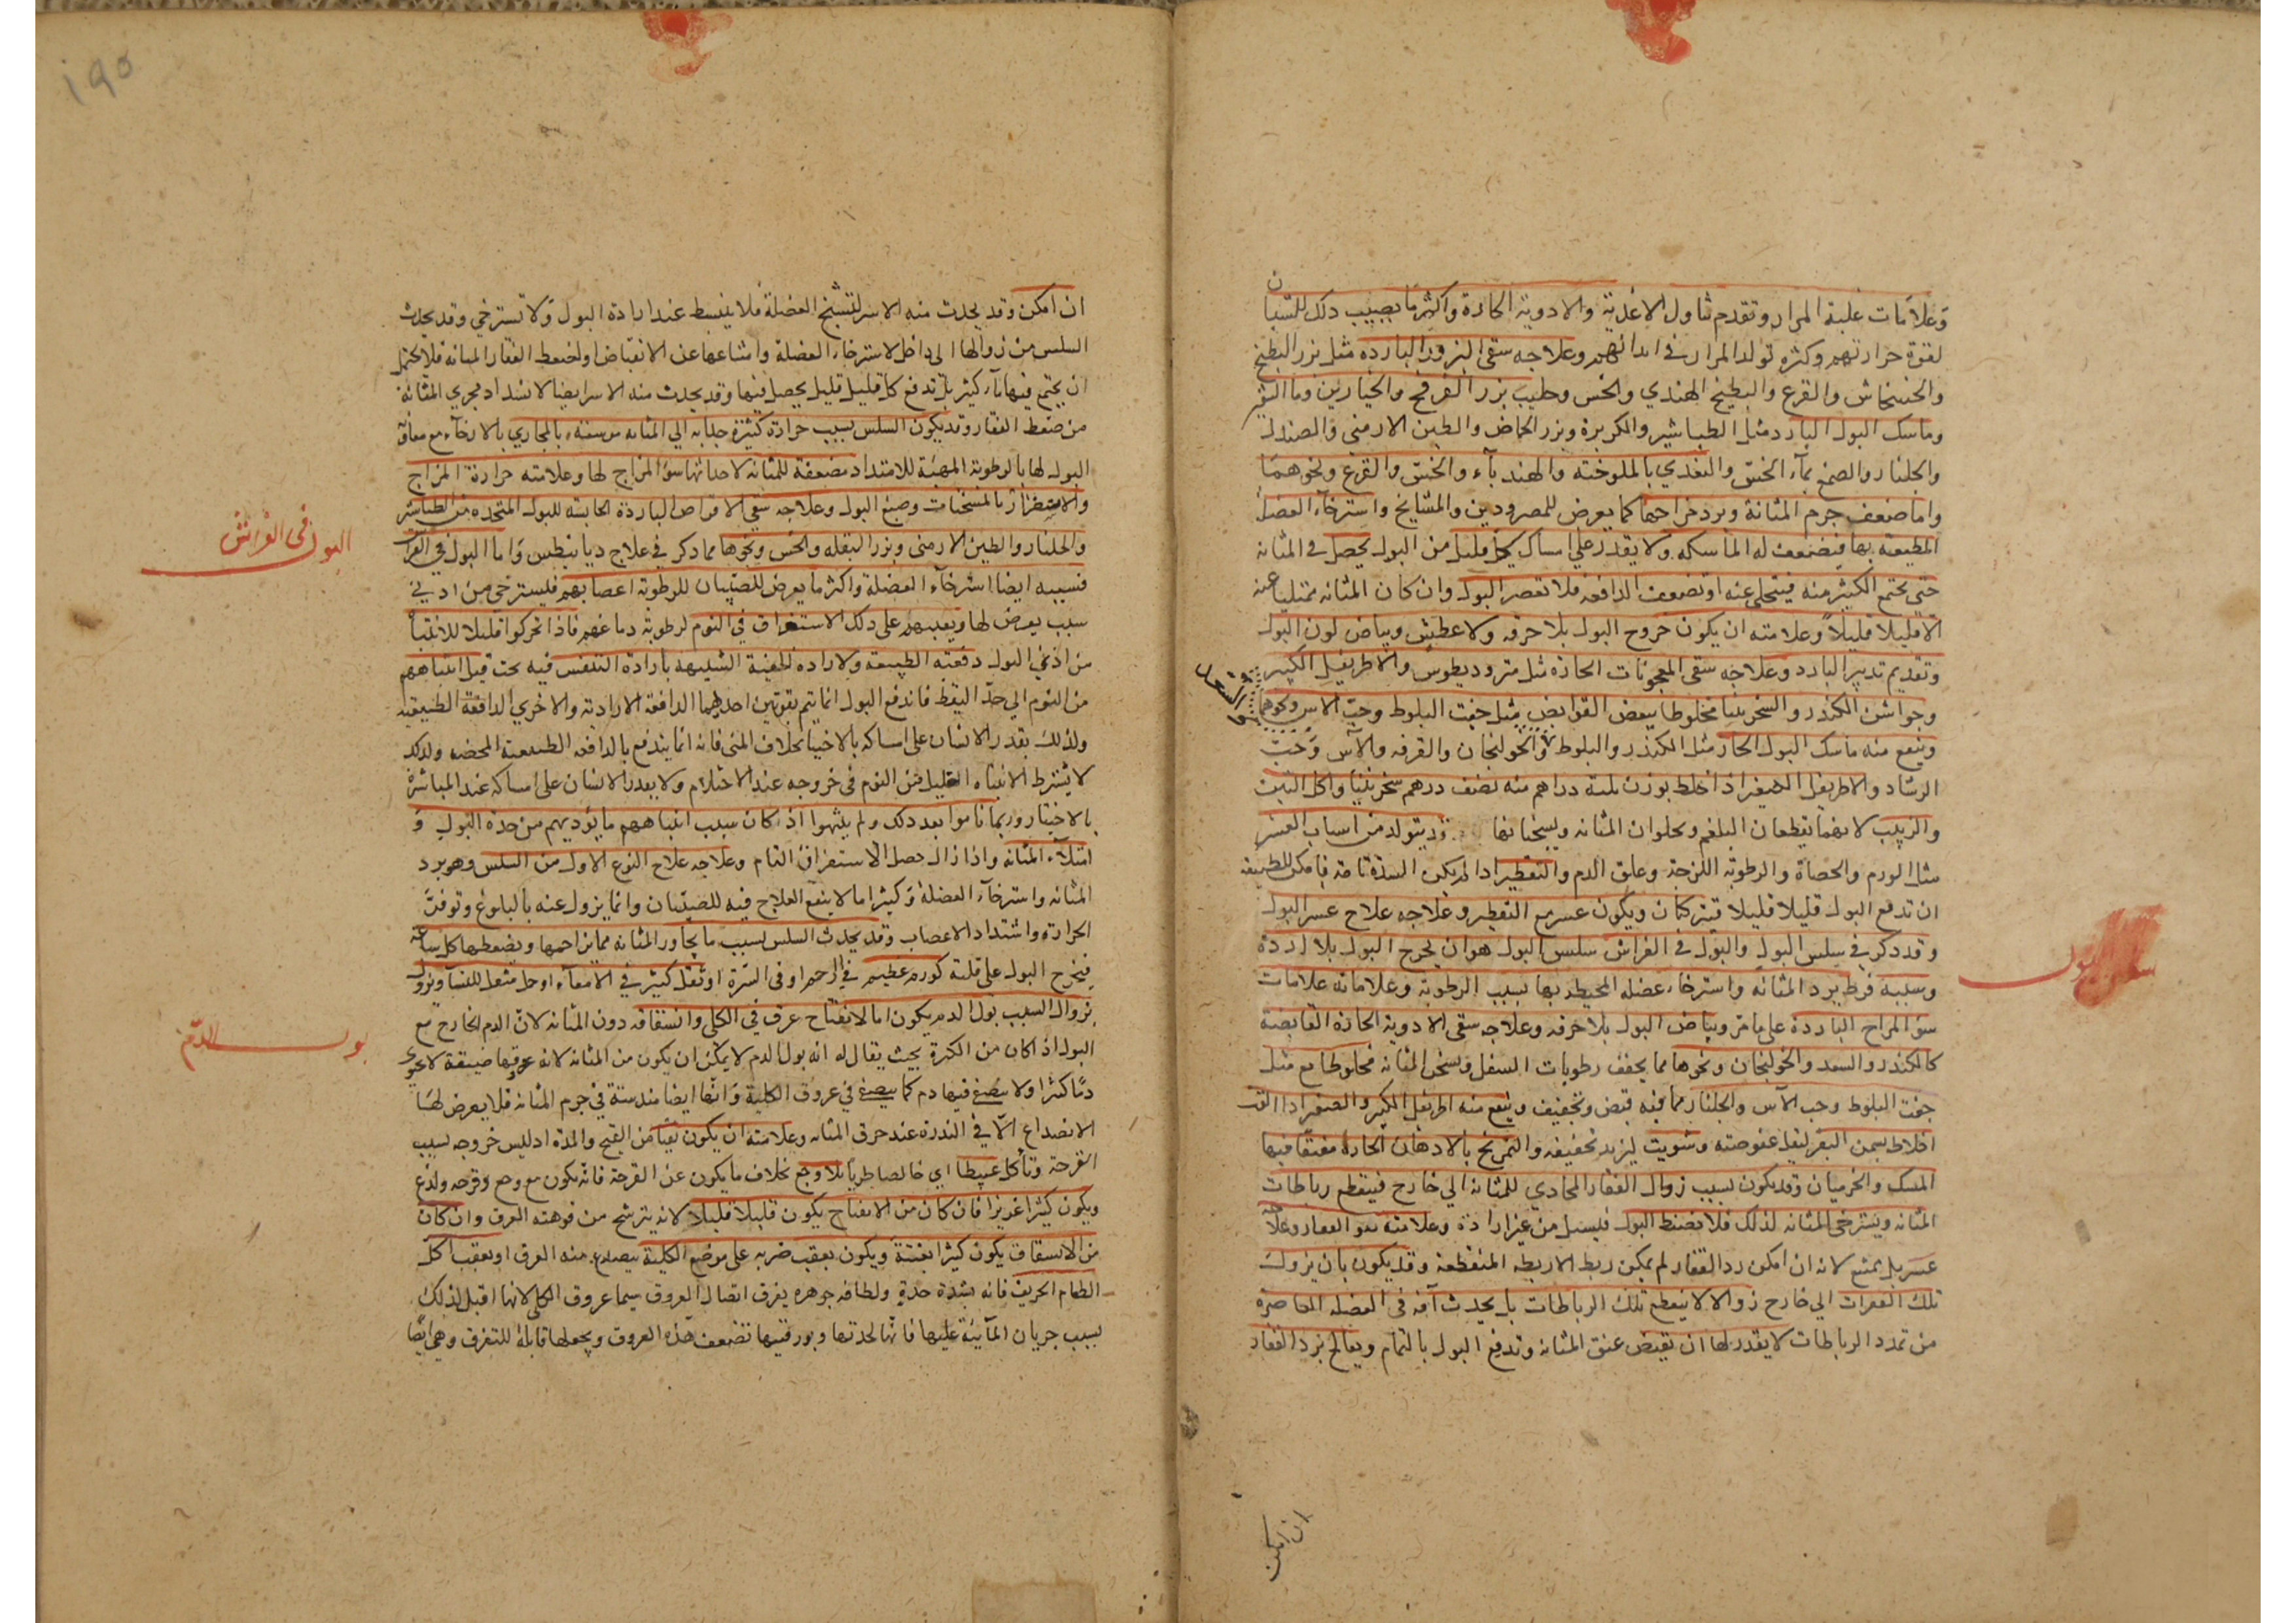 وعلامات غلبة المرار وتقدم تناول الاغذية والادوية الحارة واكثر ما يصيب ذلك للشبان
لقوة حرارتهم وكثرة تولد المرار في ابدانهم وعلاجه سقى البزور الباردة مثل بزر البطيخ
والخشخاش والقرع والبطيخ الهندي والخس وحليب بزر الفرفخ والخيارين وما الشعير
وماسك البول البارد مثل الطباشير والكزبرة وبزر الحماض والطين الارمنى والصندل
والجلنار والصمغ بمآء الخس والتغدي بالملوخيه والهندبآء والخس والقرع ونحوهما
واما ضعف جرم المثانة وبرد مزاجها كما يعرض للمبرودين والمشايخ واسترخآء العضل
المطيفة بها فيضعف له الماسكه ولا يقدر على امساك كل قليل من البول يحصل فى المثانه
حتى يجتمع الكثير منه فيتخلى عنه او تضعف الدافعه فلا تعصر البول وان كان المثانه ممتليا عنه
الا قليلا قليلاً وعلامته ان يكون خروج البول بلا حرقه ولا عطش وبياض لون البول
وتقديم تدبير البارد وعلاجه سقى المعجونات الحارة مثل مثروديطوس والاطريفل الكبير
وجوارشن الكندر والسخرينيا مخلوطا ببعض القوابض مثل جفت البلوط وحب الاس ونحوهما
وينفع منه ماسك البول الحار مثل الكندر والبلوط والخولنجان والقرفه والآس وحب
الرشاد والاطريفل الصغير اذا خلط بوزن ثلثة دراهم منه نصف درهم سخرينيا واكل التين
والزبيب لانهما يقطعان البلغم ويجلوان المثانه ويسخنانها وقد يتولد من اسباب العسر
مثل الورم والحصاة والرطوبة اللزجة وعلق الدم والتقطير اذا لم يكن السدة تامة فامكن للطبيعة
ان تدفع البول قليلا قليلا ويكون عسر مع التقطير وعلاجه علاج عسر البول
وقد ذكر في سلس البول والبول في الفراش سلس البول هو ان يخرج البول بلا ارادة
وسببه فرط برد المثانه واسترخاء عضله المحيطه بها بسبب الرطوبة وعلاماته علامات
سؤ المزاج الباردة على ما مر وبياض البول بلا حرقه وعلاجه سقى الادوية الحارة القابضة
كالكندر والسعد والخولنجان ونحوها مما يجفف رطوبات السفل ويسخن المثانه مخلوطا مع مثل
جفت البلوط وحب الآس والجلنار مما فيه قبض وتجفيف وينفع منه اطريفل الكبير والصغير اذا
اخلاط بسمن البقر لتقل عفوصته وشويت ليزيد تجفيفه والتمريخ بالادهان الحارة مفتقا فيها
المسك والخرميان وقد يكون بسبب زوال الفقار المحاذي للمثانه الي خارج فينقطع رباطات
المثانه ويسترخى المثانه لذلك فلا تضبط البول فيسيل من غير ارادة وعلامته نتو الفقار وعلاجه
عسر بل يمتنع لانه ان امكن رد الفقار لم يمكن ربط الاربطه المنقطعة وقد يكون بان يزول
تلك الفقرات الي خارج زوالا لا ينقطع تلك الرباطات بل يحدث آفه فى العضله العاصرة
من تمدد الرباطات لا يقدر لها ان يقبض عنق المثانه وتدفع البول بالتمام ويعالج برد الفقار
سلس البول
ان امكن
ان امكن وقد يحدث منه الاسر لتشنج العضلة فلا ينبسط عند ارادة البول ولا تسترخي وقد يحدث
السلس من زوالها الى داخل لاسترخاء العضلة وامتناعها عن الانقباض او لضغط الفقار المثانة فلا يحتمل
ان يجتمع فيها مآء كثير بل تدفع كل قليل قليل يحصل فيها وقد يحدث منه الاسر ايضا لانسداد مجري المثانة
من ضغط الفقار وقد يكون السلس بسبب حرارة كثيرة جذابه الي المثانه موسعه بالمجاري بالارخآء مع معاوقة
البول لها بالرطوبة المهيئة للامتداد مضعفة للمثانه لاحداثها سؤ المزاج لها وعلامته حرارة المزاج
والاستضرار بالمسخنات وصبغ البول وعلاجه سقى الاقراص الباردة الحابسة للبول المتخذه من الطباشير
والجلنار والطين الارمنى وبزر البقله والخس ونحوها مما ذكر في علاج ديابيطس واما البول في الفراش
فسببه ايضا استرخآء العضلة واكثر ما يعرض للصبيان للرطوبة اعصابهم فيسترخى من ادني
سبب يعرض لها ويعينهم على ذلك الاستغراق في النوم لرطوبة دماغهم فاذا تحركوا قليلا للانتباه
من اذي البول دفعته الطبيعة والارادة الخفية الشبيهة بارادة التنفس فيه تحت قبل انتباههم
من النوم الي حد اليقظ فان دفع البول انما يتم بقوتين احديهما الدافعة الارادية والاخري الدافعة الطبيعية
ولذلك يقدر الانسان على امساكه بالاختيار بخلاف المنى فانه انما يندفع بالدافعه الطبيعية المحضه ولذلك
لا يشترط الانتباه القليل من النوم فى خروجه عند الاحتلام ولا يقدر الانسان على امساكه عند المباشرة
بالاختيار وربما ناموا بعد ذلك ولم ينتبهوا اذ كان سبب انتباههم ما يؤذيهم من حدة البول و
امتلآء المثانه واذا زال حصل الاستغراق التام وعلاجه علاج النوع الاول من السلس وهو برد
المثانه واسترخآء العضلة وكثيرا ما لا ينفع العلاج فيه للصبيان وانما يزول عنه بالبلوغ وتوقد
الحرارة واشتداد الاعصاب وقد يحدث السلس بسبب ما يجاور المثانه مما يزاحمها ويضغطها كل ساعه
فيخرج البول على قلته كورم عظيم في الرحم او فى السرة او ثقل كثير في الامعآء او حمل مثقل للنسآ ويزول
بزوال السبب بول الدم يكون اما لانفتاح عرق في الكلى وانشقاقه دون المثانه لان الدم الخارج مع
البول اذا كان من الكثرة بحيث يقال له انه بول الدم لا يمكن ان يكون من المثانه لانه عروقها ضيقة لا يحوى
دمًا كثيرا ولا يصفى فيها دم كما يصفى في عروق الكلية وانها ايضا مندسة في جرم المثانه فلا يعرض لها
الانصداع الا في الندرة عند حرق المثانه وعلامته ان يكون نقيا من القيح والمدة اذ ليس خروجه بسبب
القرحة وتآكل عبيطا اي خالصا طريا بلا وجع بخلاف ما يكون عن القرحة فانه يكون مع وجع وقرحه ولذع
ويكون كثيرا غزيرا فان كان من الانفتاح يكون قليلا قليلا لانه يترشح من فوهته العرق وان كان
من الانشقاق يكون كثيرا بغتة ويكون بعقب ضربه على موضع الكلية ينصدع منه العرق او بعقب اكل
الطعام الحريف فانه بشدة حدة ولطافه جوهره يفرق اتصال العروق سيما عروق الكلى لانها اقبل لذلك
بسبب جريان المآئية عليها فانها لحدتها وبورقيتها تضعف هذه العروق ويجعلها قابلة للتفرق وهى ايضًا
البول فى الفراش
بول الدم
١٩٥